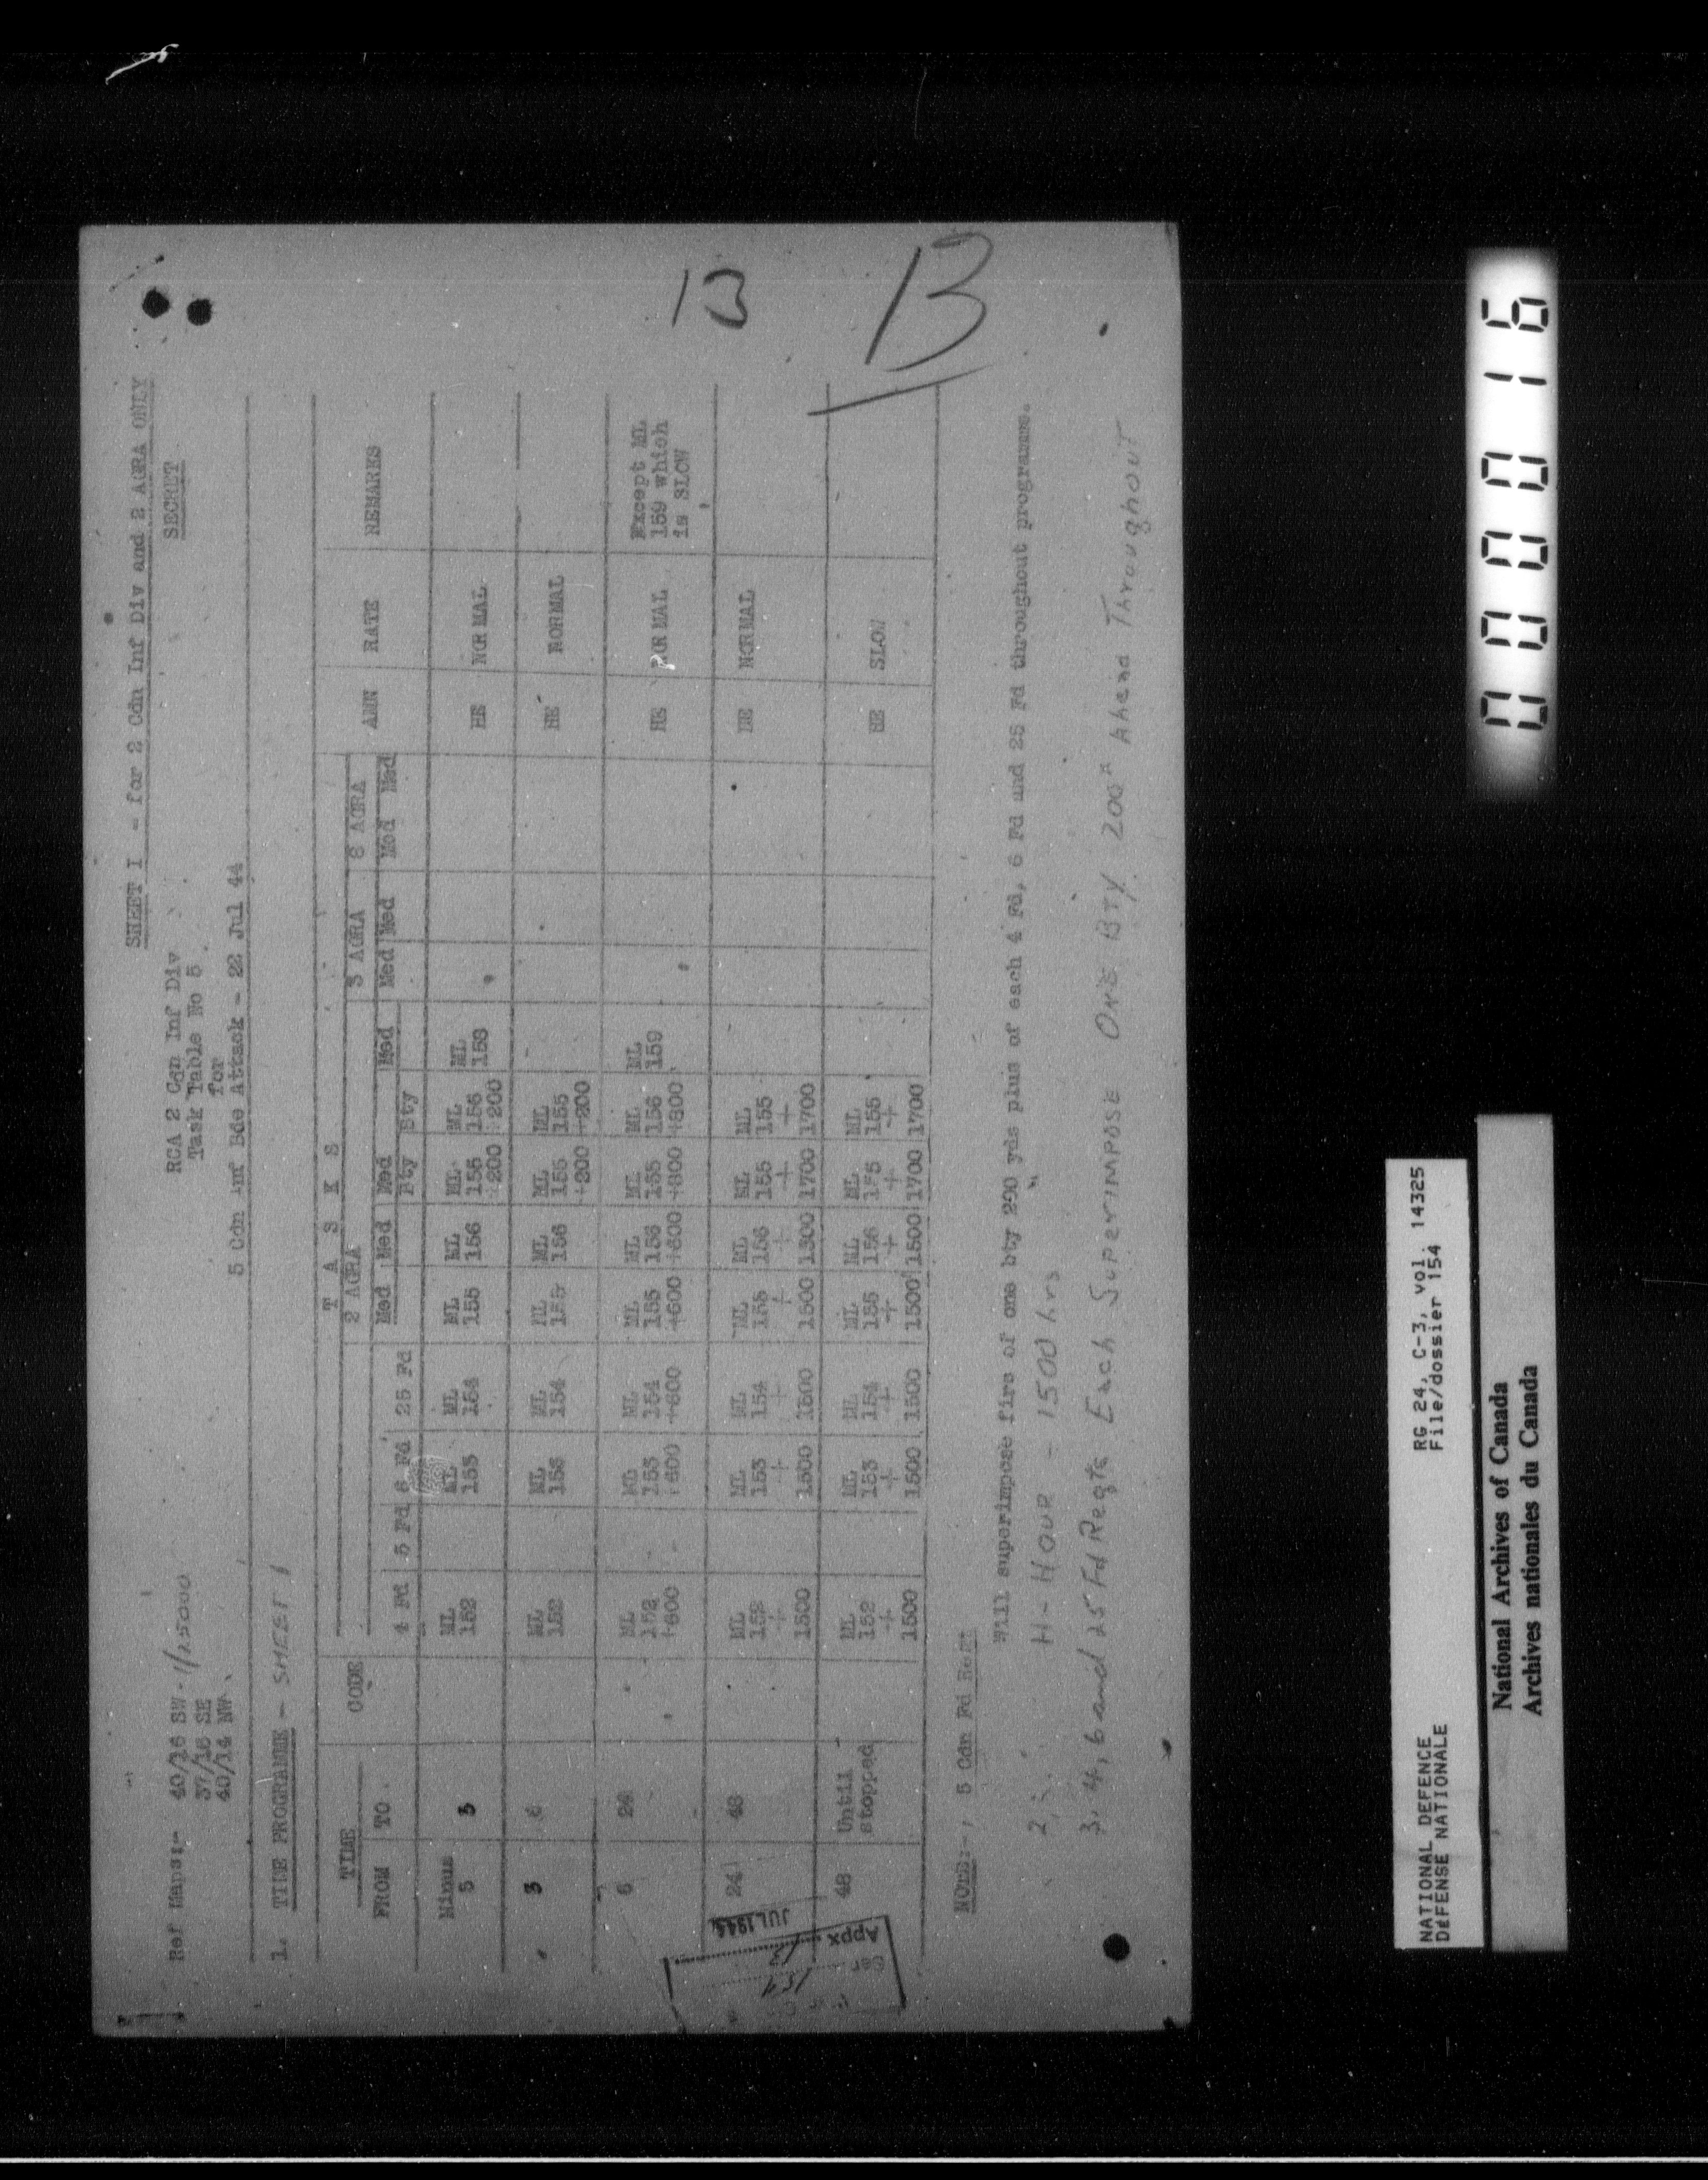 SHEET I - for 2 Cdn Inf Div and 2 AGRA ONLY
RCA 2 Cdn Inf Div
SECRET
Task Table No 5
for
5 Cdn Inf Bde Attack - 22 Jul 44
Ref Maps:- 40/16 SW - 1/25000
37/16 SE
40/14 NW
1. TIME PROGRAMME - SHEET 1
TIME CODE T A S K S AMN RATE REMARKS
2 AGRA 3 AGRA 8 AGRA
FROM TO 4 Fd 5 Fd 6 Fd 25 Fd Med Med Med Bty Bty Med Med Med Med Med
Minus 5 3 ML 152 ML 153 ML 154 ML 155 ML 156 ML 155 +200 ML 156 +200 ML 158 HE NORMAL
3 6 ML 152 ML 153 ML 154 ML 155 ML 156 ML 155 +200 ML 155 +200 HE NORMAL
6 24 ML 152 +600 ML 153 +600 ML 154 +600 ML 155 +600 ML 156 +600 ML 155 +800 ML 156 +800 ML 159 HE NORMAL Except ML 159 which is SLOW
24 48 ML 152 + 1500 ML 153 + 1500 ML 154 + 1500 ML 155 + 1500 ML 156 + 1500 ML 155 + 1700 ML 155 + 1700 HE NORMAL
48 Until stopped ML 152 + 1500 ML 153 + 1500 ML 154 + 1500 ML 155 + 1500 ML 156 + 1500 ML 155 + 1700 ML 155 + 1700 HE SLOW
NOTE:- 5 Cdn Fd Regt
Will superimpose fire of one bty 200 yds plus of each 4 Fd, 6 Fd and 25 Fd throughout programme.
2. H-HOUR - 1500 hrs
3. 4, 6 and 25 Fd Regts Each Superimpose ONE BTY 200x Ahead Throughout
13
B
Appx
JUL 1944
000016
NATIONAL DEFENCE RG 24, C-3, vol. 14325
DEFENSE NATIONALE File/dossier 154
National Archives of Canada
Archives nationales du Canada